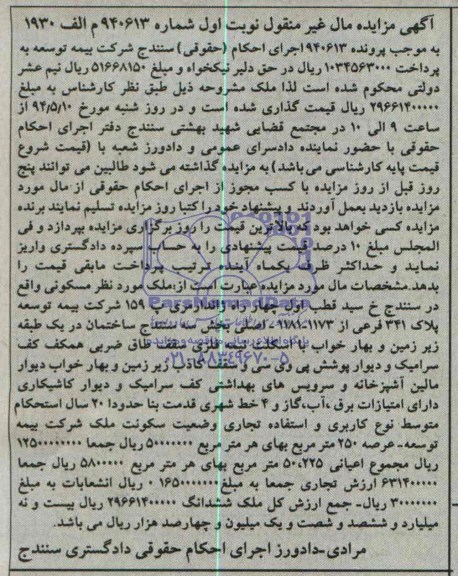 آگهی مزایده مال غیر منقول نوبت اول شماره ۹۴۰۶۱۳ م الف ۱۹۳۰
به موجب پرونده ۹۴۰۶۱۳ اجرای احکام (حقوقی) سنندج شرکت بیمه توسعه به
پرداخت ۱۰۳۴۵۶۳۰۰۰ ریال در حق دلیر نیکخواه و مبلغ ۵۱۶۶۸۱۵۰ ریال نیم عشر
دولتی محکوم شده است لذا ملک مشروحه ذیل طبق نظر کارشناس به مبلغ
۲۹۶۶۱۴۰۰۰۰۰ ریال قیمت گذاری شده است و در روز شنبه مورخ ۹۴/۵/۱۰ از
ساعت ۹ الی ۱۰ در مجتمع قضایی شهید بهشتی سنندج دفتر اجرای احکام
حقوقی با حضور نماینده دادسرای عمومی و دادورز شعبه با (قیمت شروع
قیمت پایه کارشناسی می‌باشد) به مزایده گذاشته می شود طالبین می توانند پنج
روز قبل از روز مزایده با کسب مجوز از اجرای احکام حقوقی از مال مورد
مزایده بازدید بعمل آوردند و پیشنهاد خود را کتبا روز مزایده تسلیم نمایند برنده
مزایده کسی خواهد بود که بالاترین قیمت را روز برگزاری مزایده بپردازد و فی
المجلس مبلغ ۱۰ درصد قیمت پیشنهادی را به حساب سپرده دادگستری واریز
نماید و حداکثر ظرف یکماه آینده ترتیب پرداخت مابقی قیمت را
بدهد.مشخصات مال مورد مزایده عبارت است از:ملک مورد نظر مسکونی واقع
در سنندج خ سید قطب اول چهار راه ژاندارمری پ ۱۵۹ شرکت بیمه توسعه
پلاک ۳۴۱ فرعی از ۱۱۷۳-۲۱۸۱ اصلی بخش سه سنندج ساختمان در یک طبقه
زیر زمین و بهار خواب با اسکلت نیمه فلزی سقف طاق ضربی همکف کف
سرامیک و دیوار پوشش پی وی سی و سقف کاذب زیر زمین و بهار خواب دیوار
مالین آشپزخانه و سرویس های بهداشتی کف سرامیک و دیوار کاشیکاری
دارای امتیازات برق ،آب،گاز و ۴ خط شهری قدمت بنا حدودا ۲۰ سال استحکام
متوسط نوع کاربری و استفاده تجاری وضعیت سکونت ملک شرکت بیمه
توسعه-عرصه ۲۵۰ متر مربع بهای هر متر مربع ۵۰۰۰۰۰۰۰ ریال جمعا ۱۲۵۰۰۰۰۰۰۰۰
ریال مجموع اعیانی ۵۰،۲۲۵ متر مربع بهای هر متر مربع ۵۸۰۰۰۰۰ ریال جمعا
۶۳۱۴۰۰۰۰۰ ارزش تجاری جمعا به مبلغ ۱۶۵۰۰۰۰۰۰۰۰ ریال انشعابات به مبلغ
۳۰۰۰۰۰۰۰ ریال- جمع ارزش کل ملک ششدانگ ۲۹۶۶۱۴۰۰۰۰۰ ریال بیست و نه
میلیارد و ششصد و شصت و یک میلیون و چهارصد هزار ریال می باشد.
مرادی-دادورز اجرای احکام حقوقی دادگستری سنندج
ParsNamadData
۰۲۱-۸۸۳۴۹۶۷۰-۵